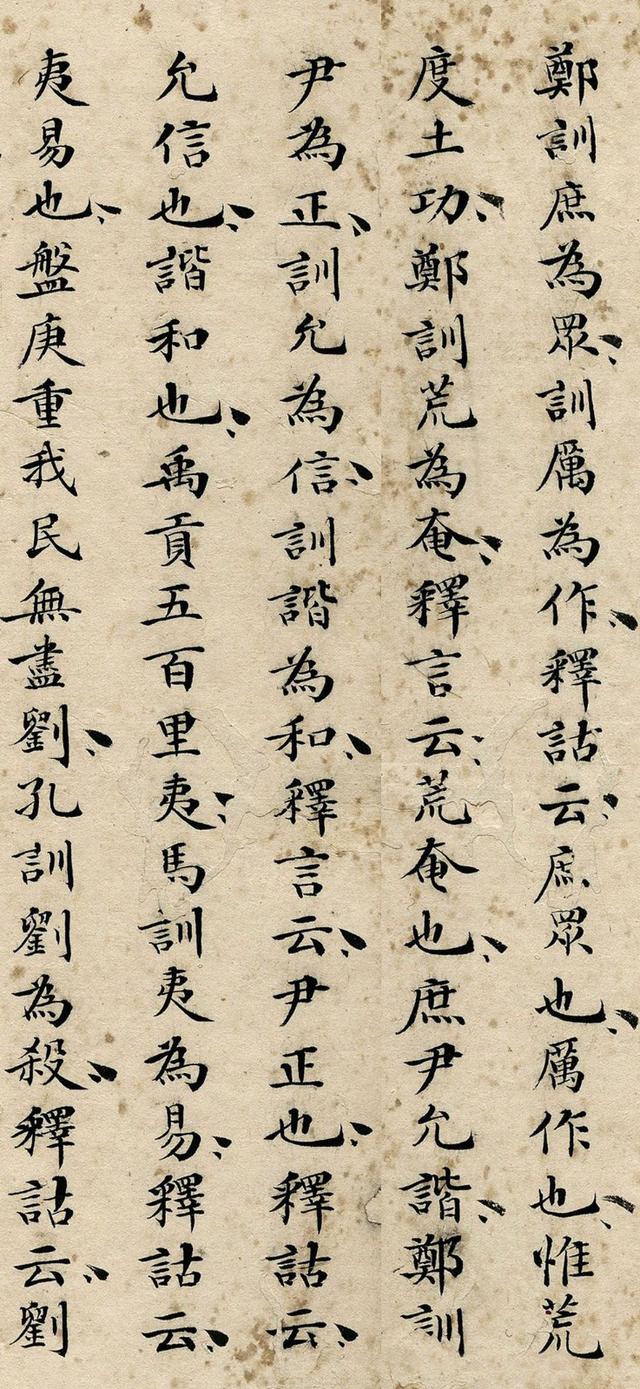 鄭訓庶為眾、訓厲為作、釋詁云、庶眾也、厲作也、惟荒
度土功、鄭訓荒為奄、釋言云、荒奄也、庶尹允諧、鄭訓
尹為正、訓允為信、訓諧為和、釋言云、尹正也、釋詁云、
允信也、諧和也、禹貢五百里夷、馬訓夷為易、釋詁云、
夷易也、盤庚重我民無盡劉、孔訓劉為殺、釋詁云、劉